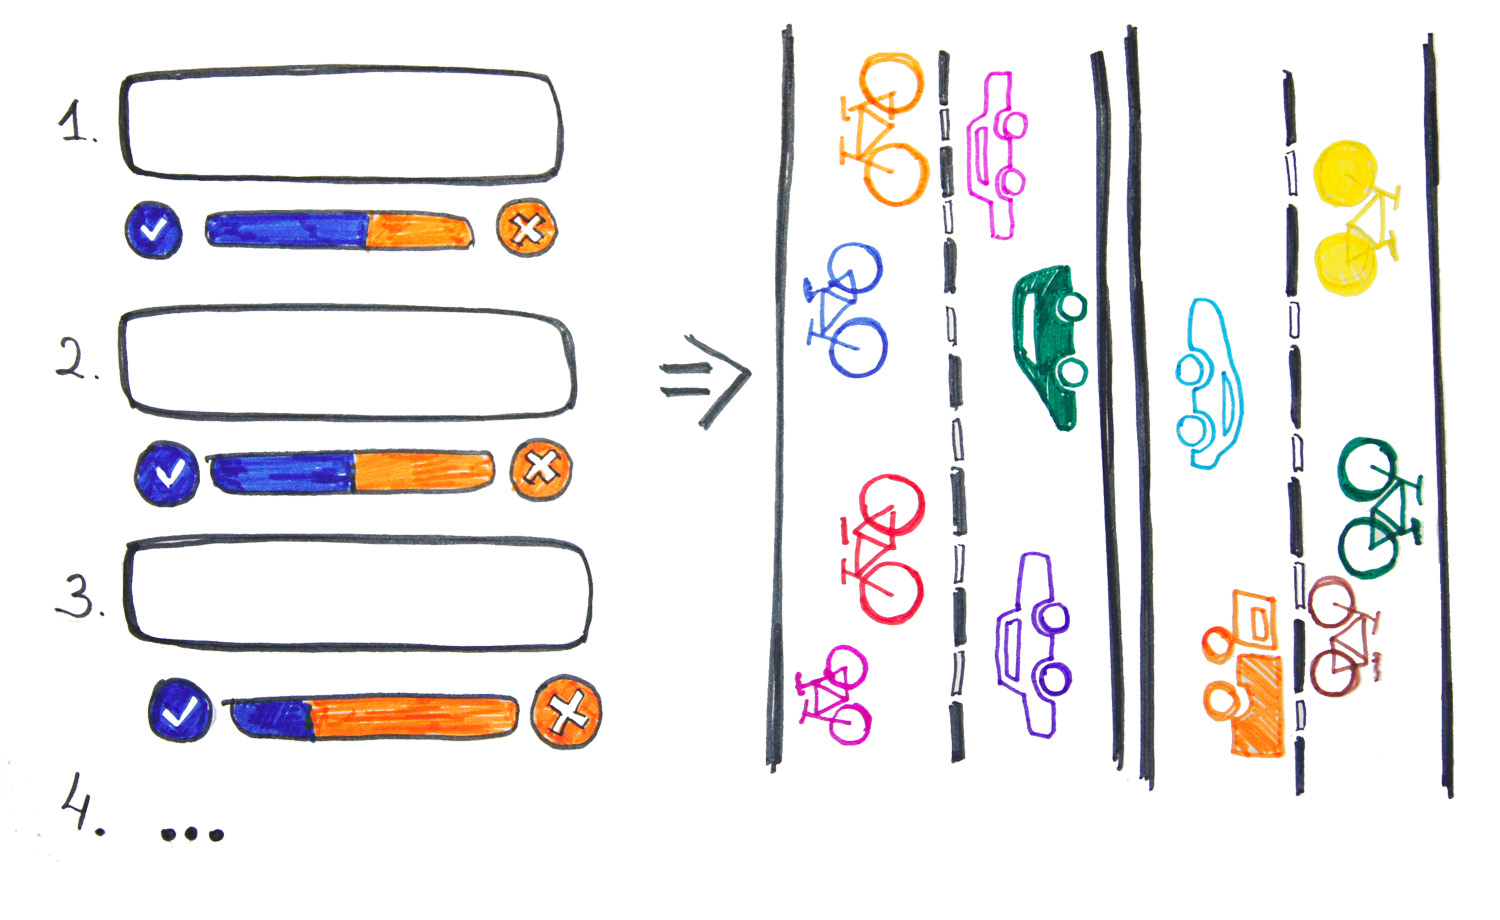 1.
2.
3.
4. ...